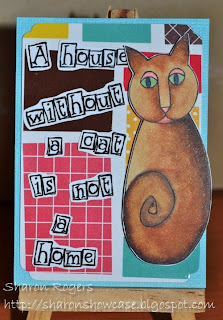 A house
without
a cat
is not
a
home
Sharon Rogers
http://sharonshowcase.blogspot.com